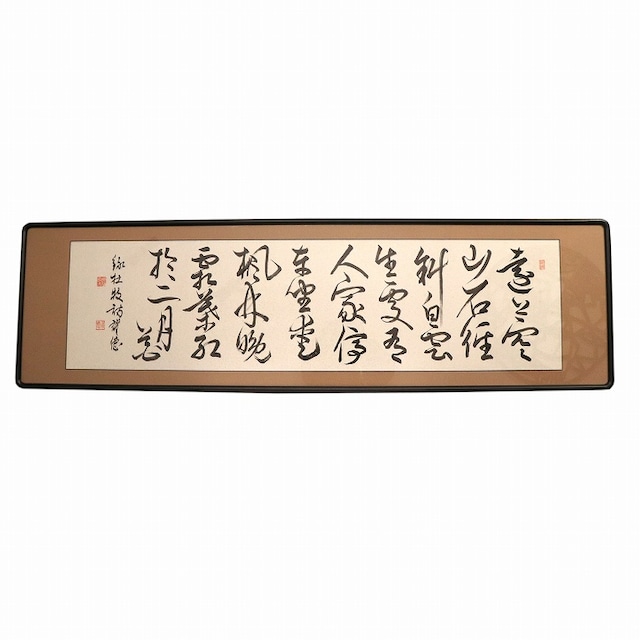 遠上寒
山石徑
斜白雲
生處有
人家停
車坐愛
楓林晚
霜葉紅
於二月花
錄杜牧詩